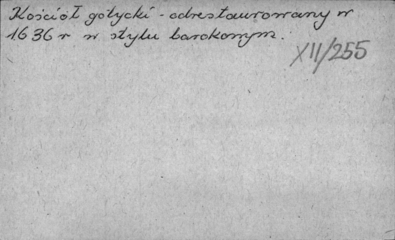 Kościół gotycki - odrestaurowany w
1636 r w stylu barokowym.
XII/255